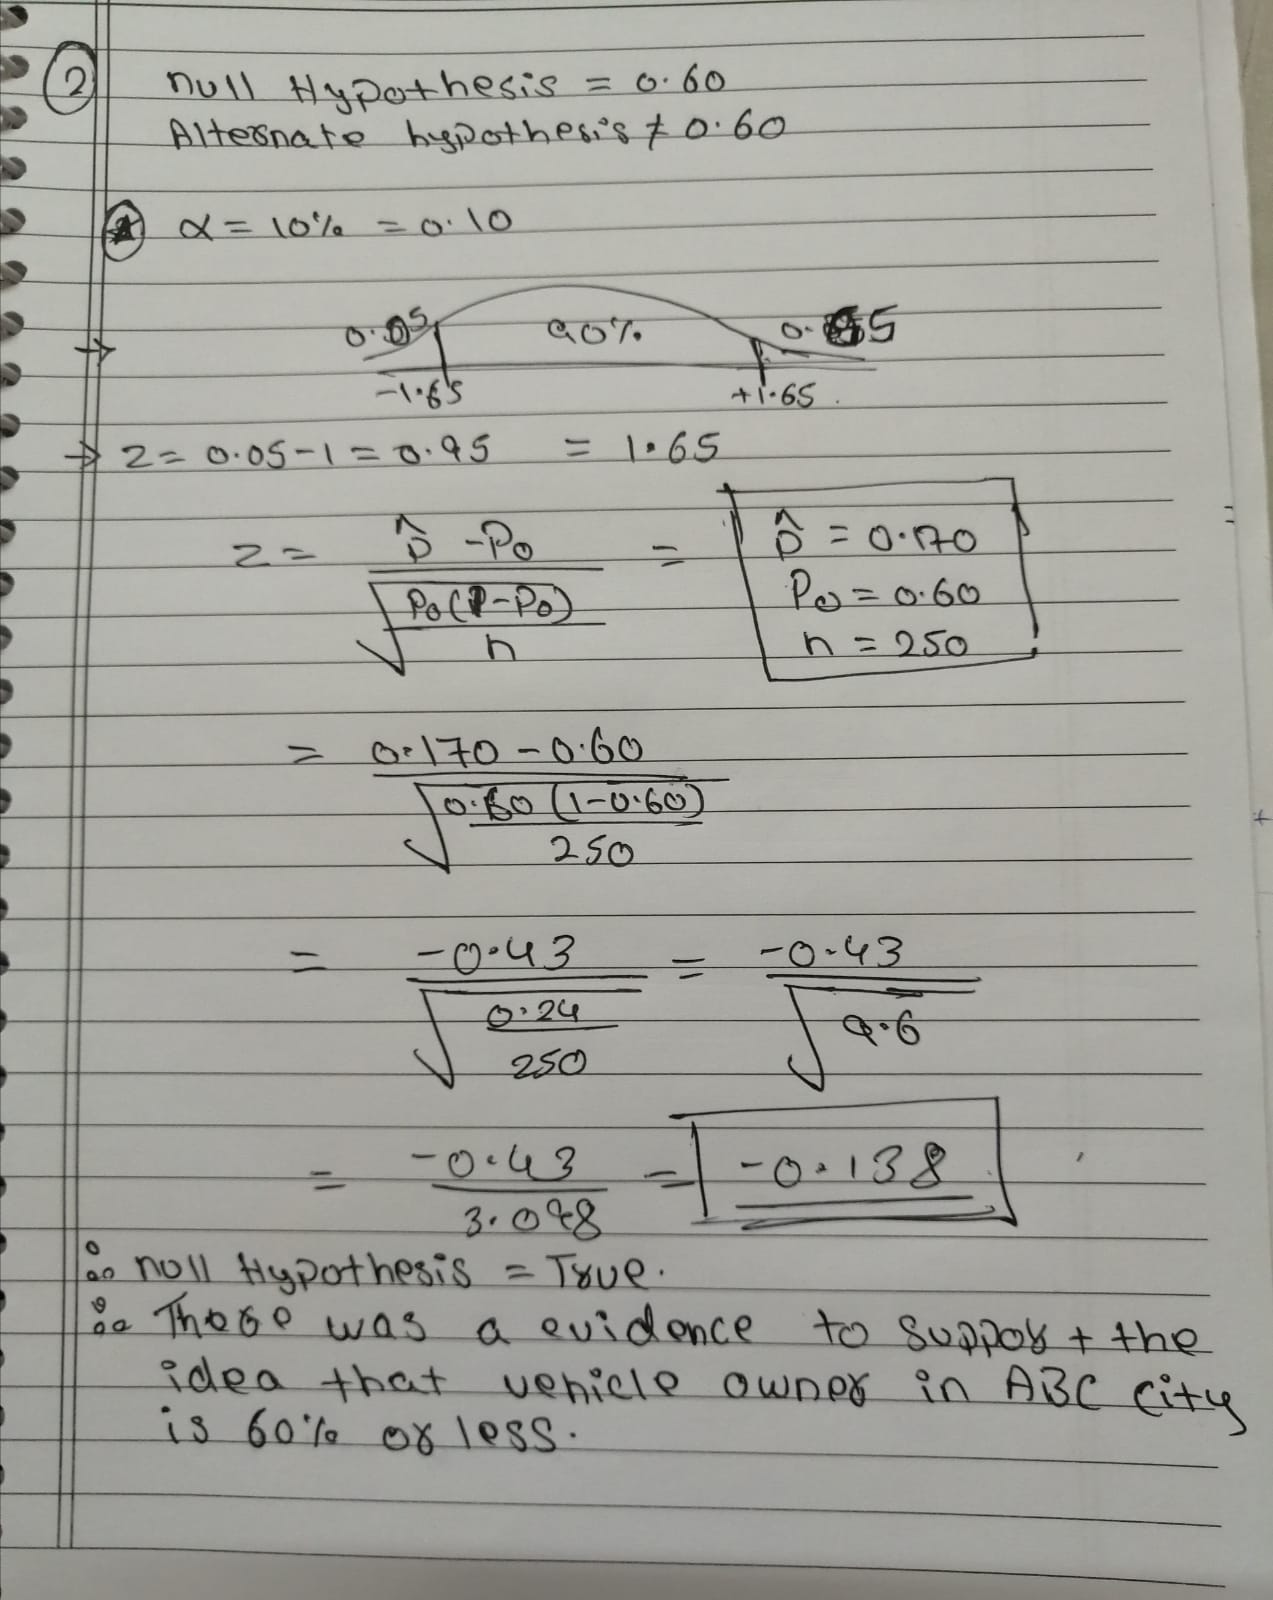 2 Null Hypothesis = 0.60
Alternate hypothesis ≠ 0.60
α = 10% = 0.10
0.05 90% 0.05
-1.65 +1.65
→ z = 0.05-1 = 0.95 = 1.65
z = p̂ - P₀ / √(P₀(1-P₀) / n) =
p̂ = 0.170
P₀ = 0.60
n = 250
= 0.170 - 0.60 / √(0.60 (1-0.60) / 250)
= -0.43 / √(0.24 / 250) = -0.43 / √9.6
= -0.43 / 3.098 = -0.138
∴ Null Hypothesis = True.
∴ There was a evidence to support the
idea that vehicle owner in ABC city
is 60% or less.